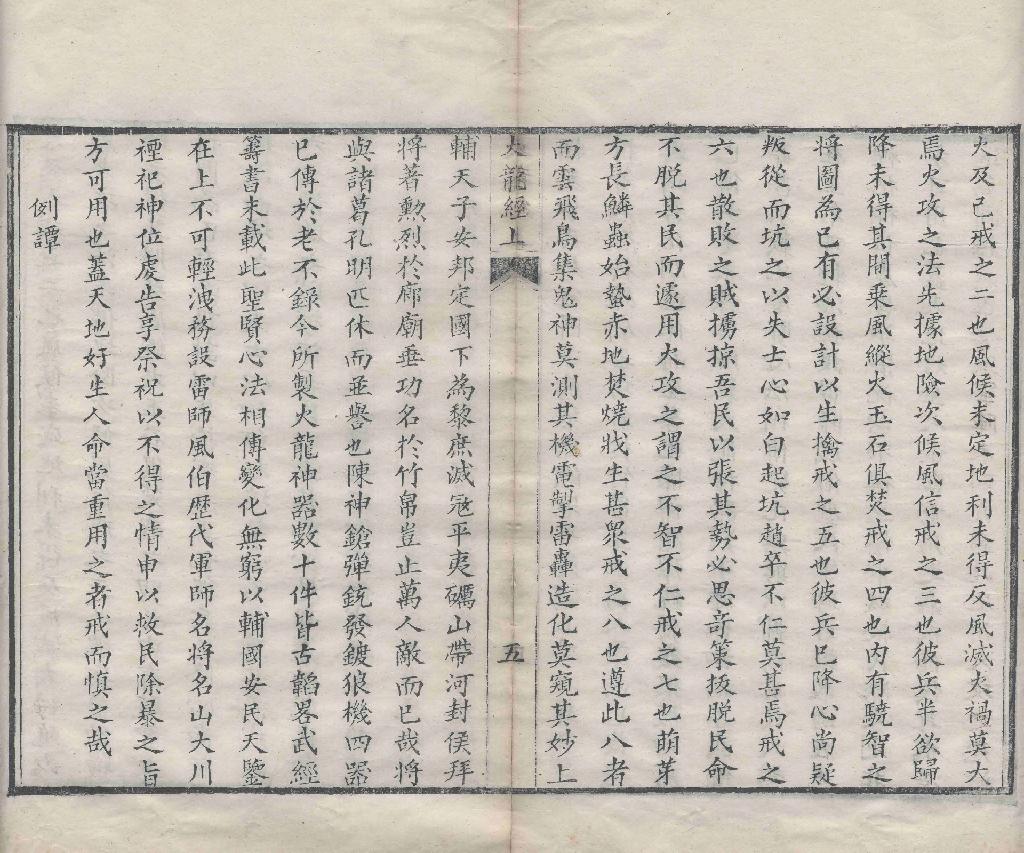 火及己戒之二也風候未定地利未得反風滅火禍莫大
焉火攻之法先據地險次候風信戒之三也彼兵半欲歸
降未得其間乗風縱火玉石俱焚戒之四也内有驍智之
將圖為已有必設計以生擒戒之五也彼兵已降心尚疑
叛從而坑之以失士心如白起坑趙卒不仁莫甚焉戒之
六也散敗之賊擄掠吾民以張其勢必思竒策扳脱民命
不脱其民而遽用火攻之謂之不智不仁戒之七也萌芽
方長鱗蟲始蟄赤地焚燒戕生甚衆戒之八也遵此八者
而雲飛鳥集鬼神莫測其機電掣雷轟造化莫窺其妙上
火龍經上 五
輔天子安邦定國下為黎庶滅冦平夷礪山帶河封侯拜
將著勲烈於廊廟垂功名於竹帛豈止萬人敵而已哉將
與諸葛孔明匹休而並譽也陳神鎗彈銃發鍍狼機四器
已傳於老不錄今所製火龍神器數十件皆古韜畧武經
籌書未載此聖賢心法相傳變化無窮以輔國安民天鑒
在上不可輕洩務設雷師風伯歴代軍師名將名山大川
禋祀神位虔告享祭祝以不得之情申以救民除暴之旨
方可用也蓋天地好生人命當重用之者戒而慎之哉
例譚